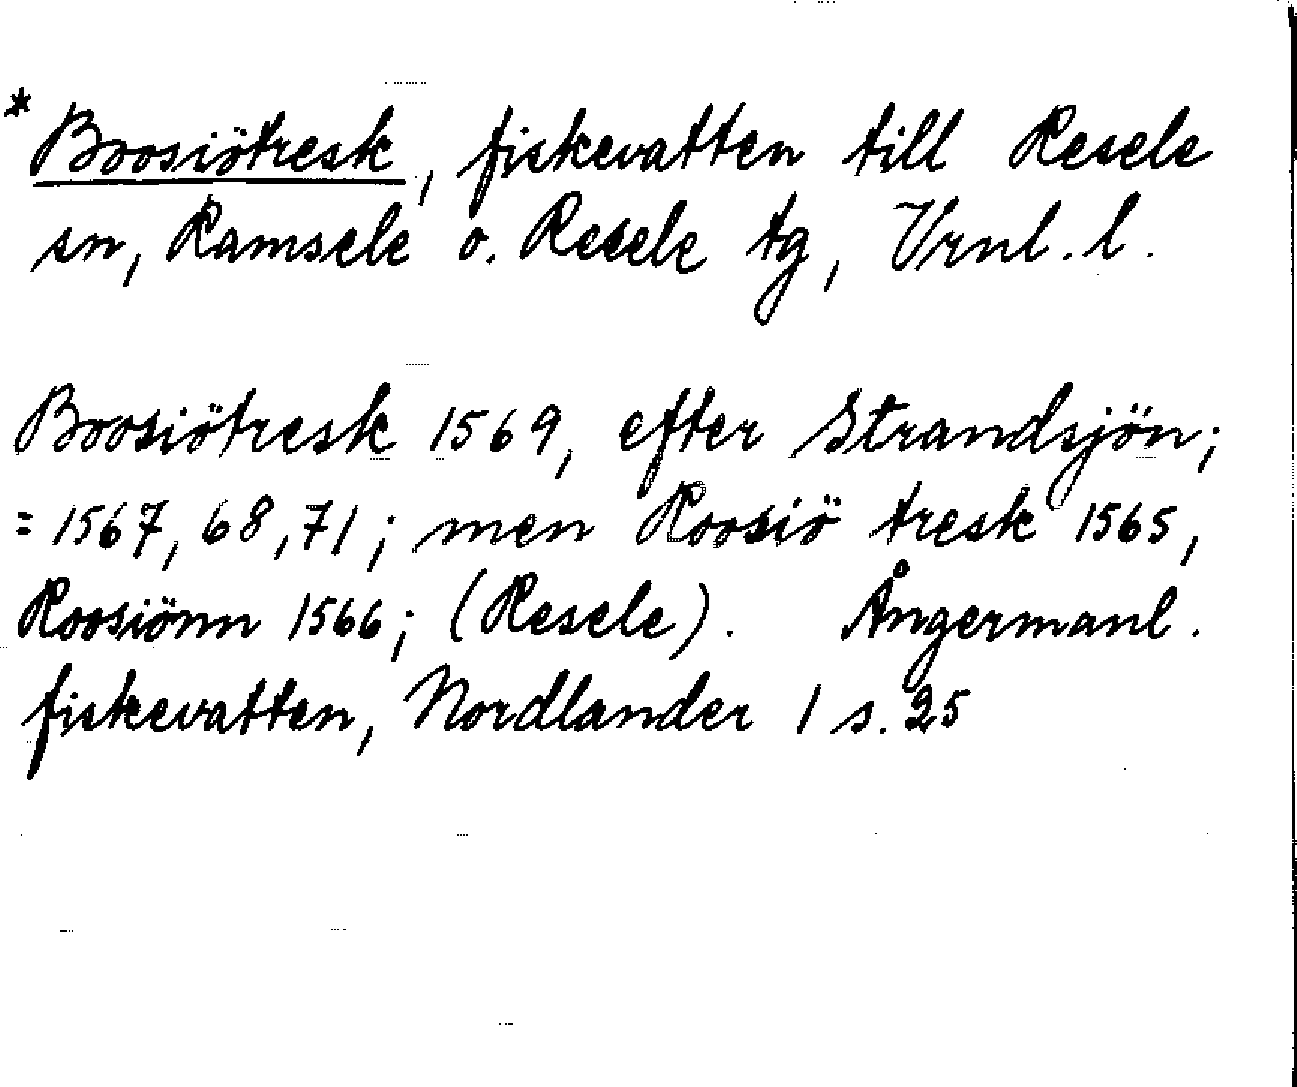 * Boosiötresk, fiskevatten till Resele
sn, Ramsele o. Resele tg, Vrnl. l.
Boosiötresk 1569, efter Strandsjön;
= 1567, 68, 71; men Roosiö tresk 1565,
Roosiönn 1566; (Resele). Ångermanl.
fiskevatten, Nordlander 1 s. 25